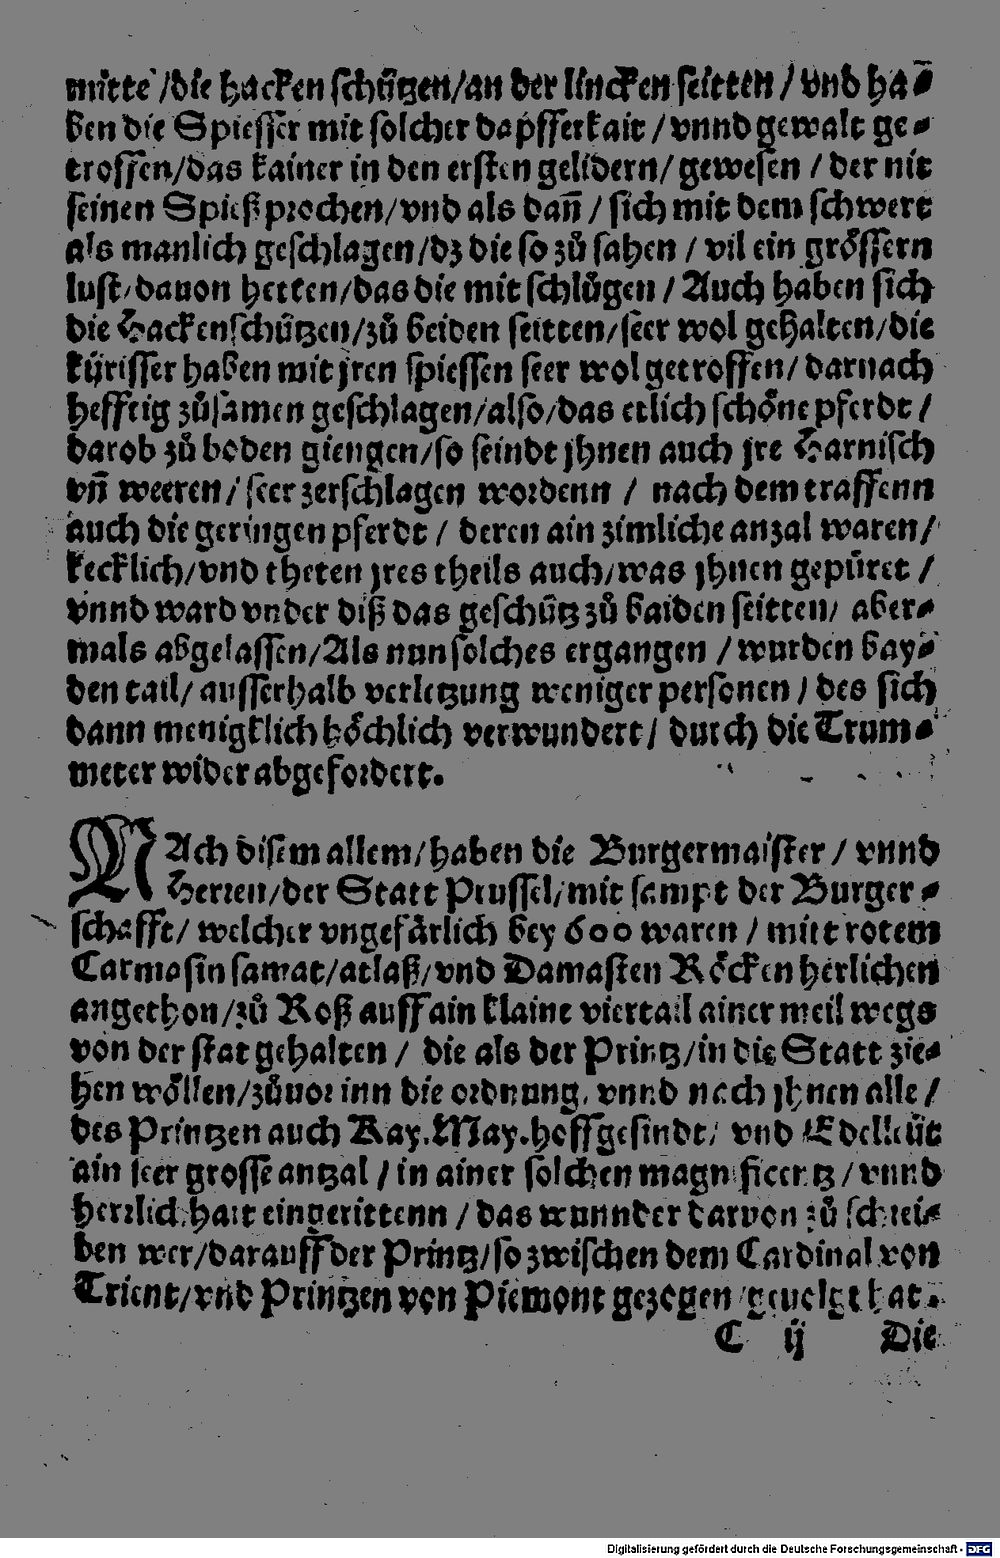 mitte /die hacken schützen/an der lincken seitten / vnd ha⸗
ben die Spiesser mit solcher dapfferkait / vnnd gewalt ge⸗
troffen/das kainer in den ersten gelidern/ gewesen / der nit
seinen Spieß prochen/vnd als dañ / sich mit dem schwert
als manlich geschlagen/dz die so zů sahen / vil ein grössern
lust/dauon hetten/das die mit schlůgen / Auch haben sich
die Hackenschützen/zů beiden seitten/seer wol gehalten/die
kürisser haben mit jren spiessen seer wol getroffen/ darnach
hefftig zůsamen geschlagen/also/das etlich schöne pferdt /
darob zů boden giengen/so seindt jhnen auch jre Harnisch
vñ weeren / seer zerschlagen wordenn / nach dem traffenn
auch die geringen pferdt / deren ain zimliche anzal waren/
kecklich/vnd theten jres theils auch/was jhnen gepüret /
vnnd ward vnder diß das geschütz zů baiden seitten/ aber⸗
mals abgelassen/Als nun solches ergangen / wurden bay⸗
den tail/ ausserhalb verletzung weniger personen / des sich
dann menigklich höchlich verwundert / durch die Trum⸗
meter wider abgefordert.
NAch disem allem/haben die Burgermaister / vnnd
Herren/der Statt Prussel/mit sampt der Burger⸗
schafft/ welcher vngefärlich bey 600 waren / mitt rotem
Carmasin samat/atlaß/vnd Damasten Röcken herlichen
angethon/zů Roß auff ain klaine viertail ainer meil wegs
von der stat gehalten / die als der Printz/in die Statt zie⸗
hen wöllen/zůuor inn die ordnung, vnnd nach jhnen alle /
des Printzen auch Kay. May. hoffgesindt/ vnd Edelleüt
ain seer grosse antzal / in ainer solchen magnificentz / vnnd
herrlichkait eingerittenn / das wunnder daruon zů schrei⸗
ben wer/darauff der Printz/so zwischen dem Cardinal von
Trient/vnd Printzen von Piemont gezogen /geuolgt hat.
C ij Die
Digitalisierung gefördert durch die Deutsche Forschungsgemeinschaft - DFG